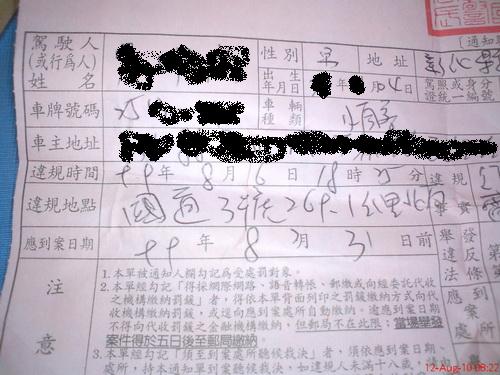 (通知
駕駛人 性別 男 地址 彰化縣
(或行為人)
姓名 出生 年月日 年 月 04日 駕照或身分 證統一編號
車牌號碼 車輛 種類
車主地址
違規時間 99年 8月 6日 18時 分 違規
違規地點 國道3號 261. 公里 北 事實
應到案日期 99年 8月 31日前 舉發 違反 法條
注 1.本單被通知人欄勾記為受處罰對象。
2.本單經勾記「得採網際網路、語音轉帳、郵繳或向經委託代收
之機構繳納罰鍰」者，得依本單背面列印之罰鍰繳納方式向代
收機構繳納罰鍰，或逕向應到案處所自動繳納。逾應到案日期
不得向代收罰鍰之金融機構繳納，但郵局不在此限；當場舉發
案件得於五日後至郵局繳納
意 3.本單經勾記「須至到案處所聽候裁決」者，須依應到案日期、
處所，持本通知單到案聽候裁決；如違規人未滿十八歲，
應到 案 處所
12-Aug-10 08:22